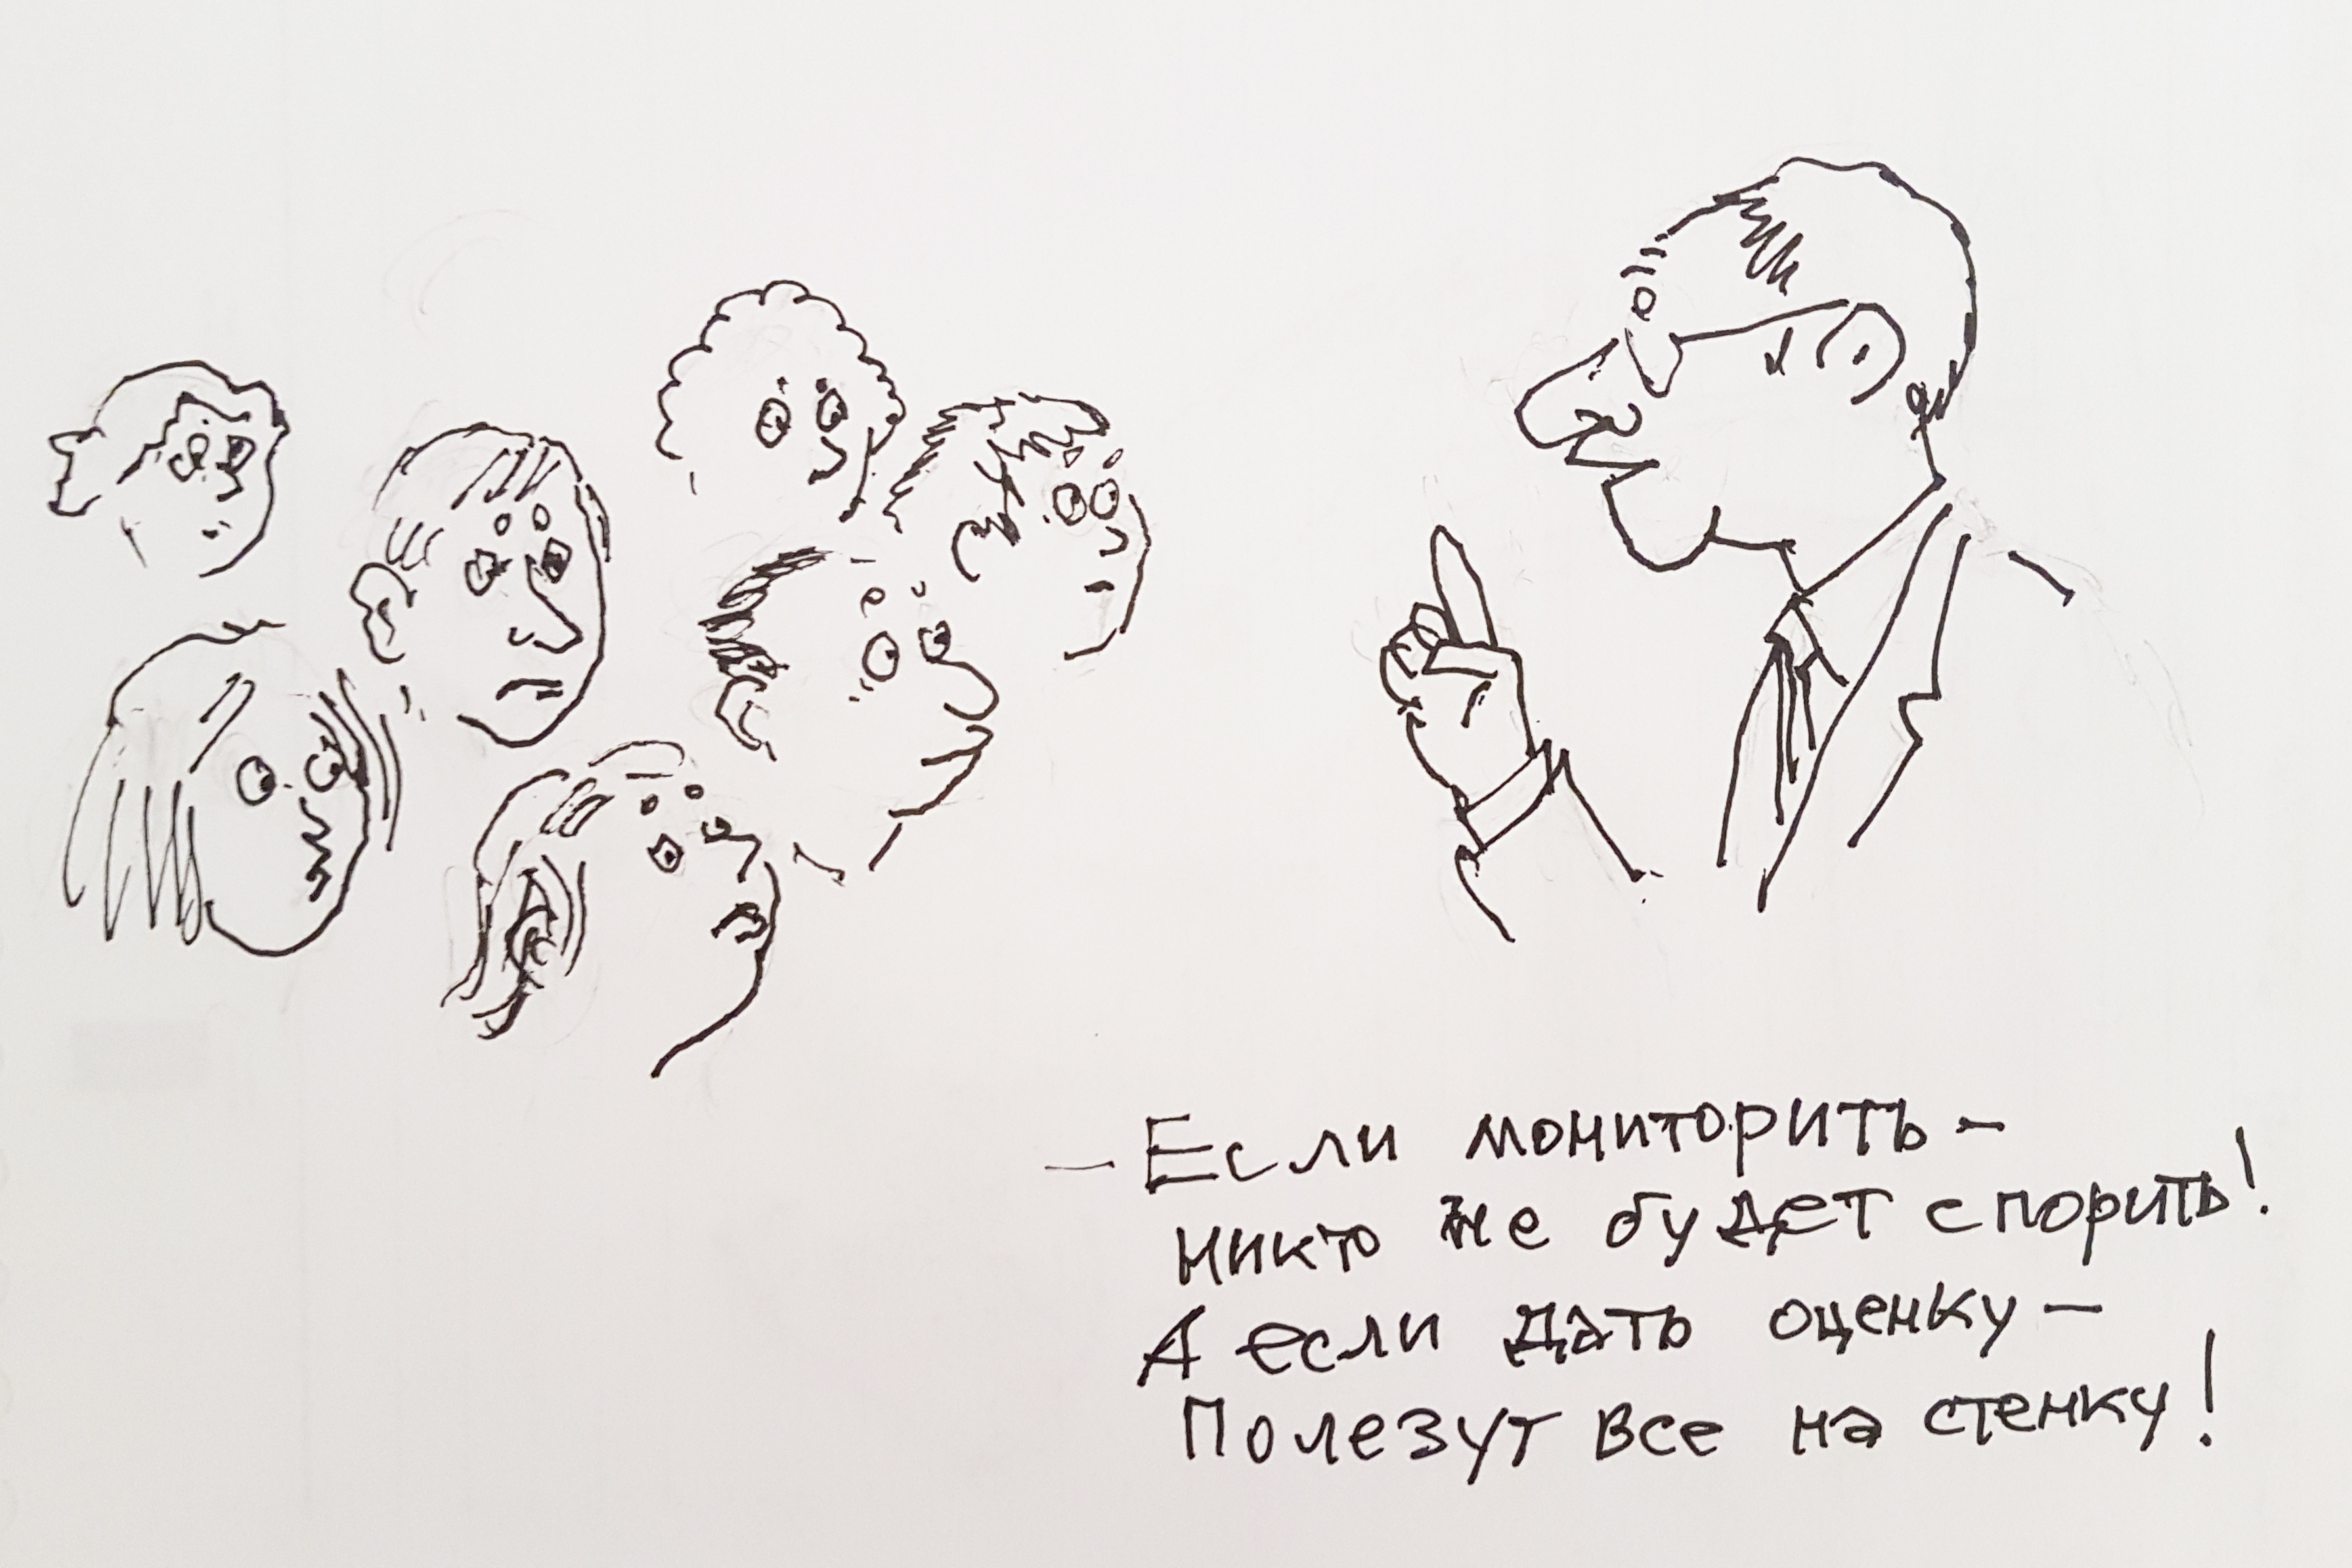 — Если мониторить —
никто не будет спорить!
А если дать оценку —
Полезут все на стенку!